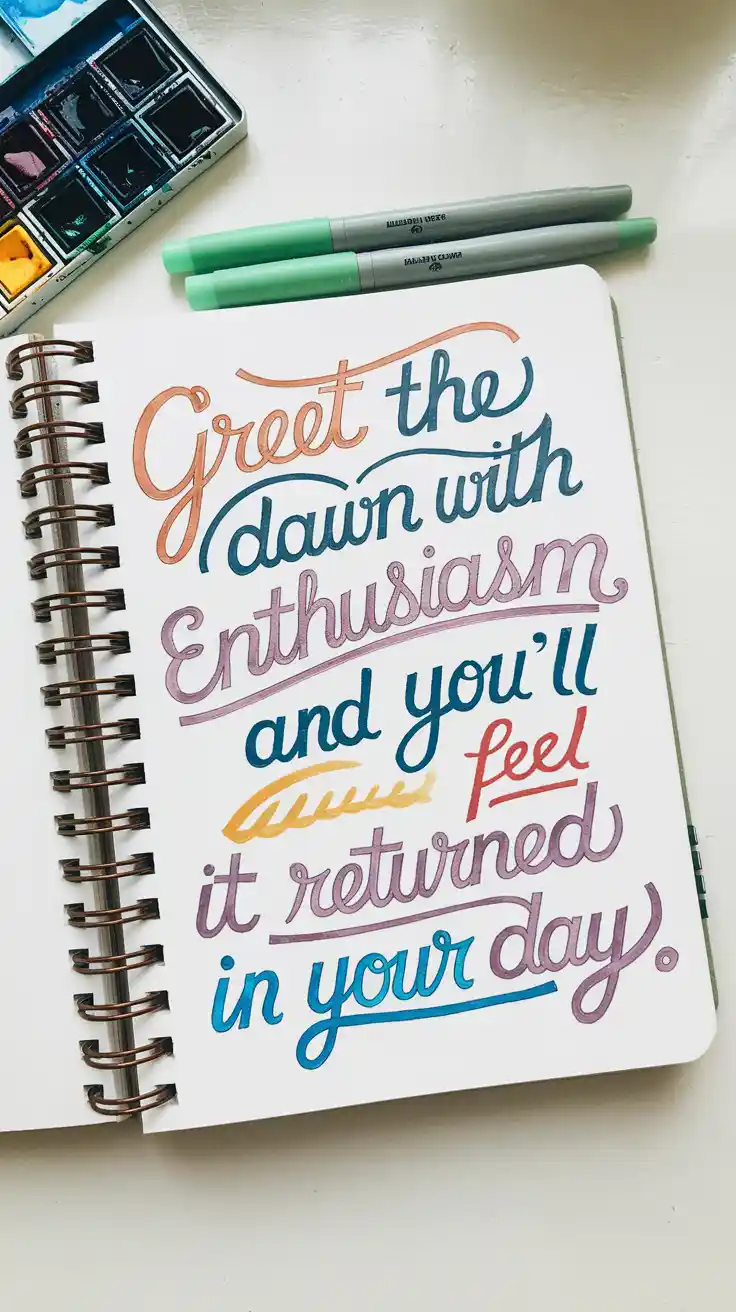 Greet the
dawn with
Enthusiasm
and you'll
feel
it returned
in your day.